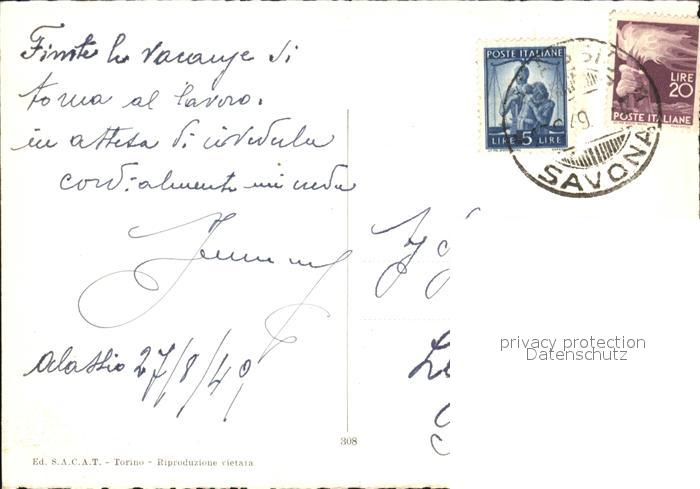 Finite le vacanze si
torna al lavoro.
in attesa di rivederla
cordialmente mi creda
Alassio 27/8/49
POSTE ITALIANE
LIRE 5 LIRE
LIRE
20
POSTE ITALIANE
SAVONA
privacy protection
Datenschutz
308
Ed. S.A.C.A.T. - Torino - Riproduzione vietata